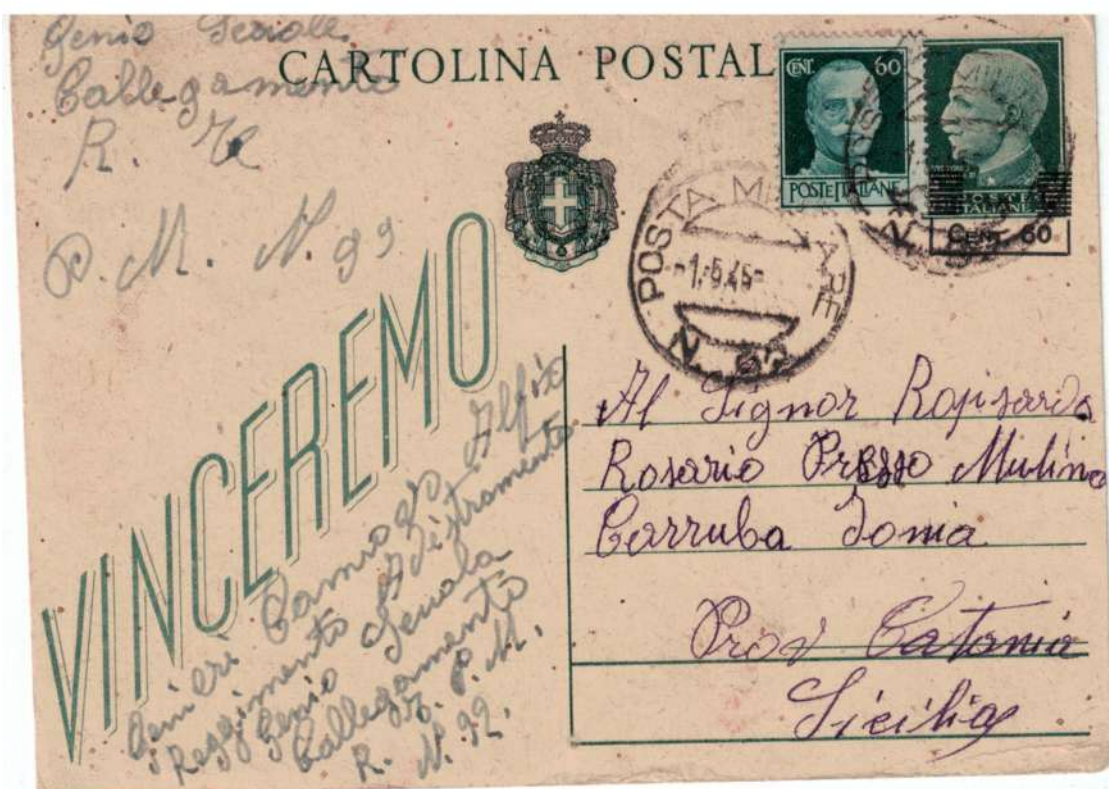 Genio Scuole
Collegamento
R.
P. M. N. 99
CARTOLINA POSTAL
CENT. 60
POSTE ITALIANE
ITALIANE
CENT. 60
POSTA MILITARE
N.
VINCEREMO
Genieri Alfio
Reggimento Adestramento
Genio Scuola
Collegamento
R. P. M.
N. 92.
Al Signor Rapisarda
Rosario Presso Mulino
Carruba Ionia
Prov Catania
Sicilia